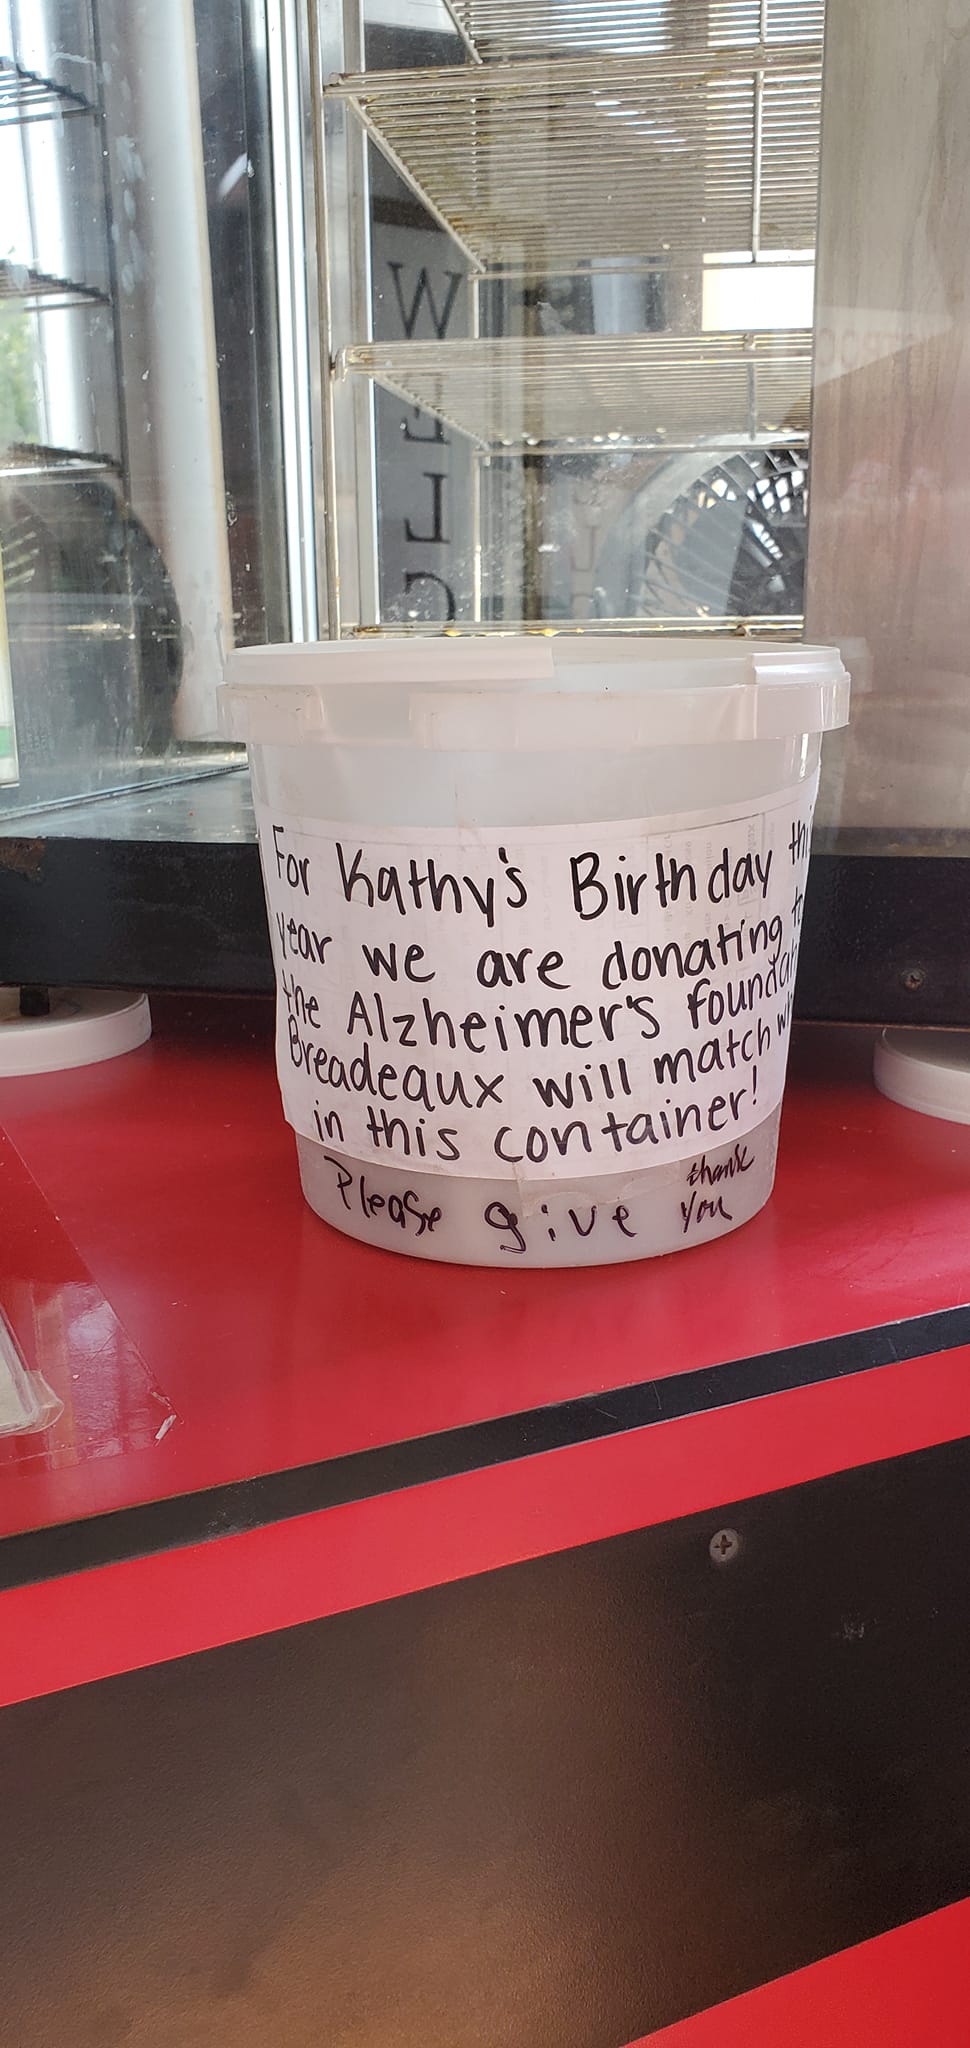 WELC
For Kathy's Birthday thi
year we are donating to
the Alzheimer's foundati
Breadeaux will match wh
in this container!
Please give thank
you